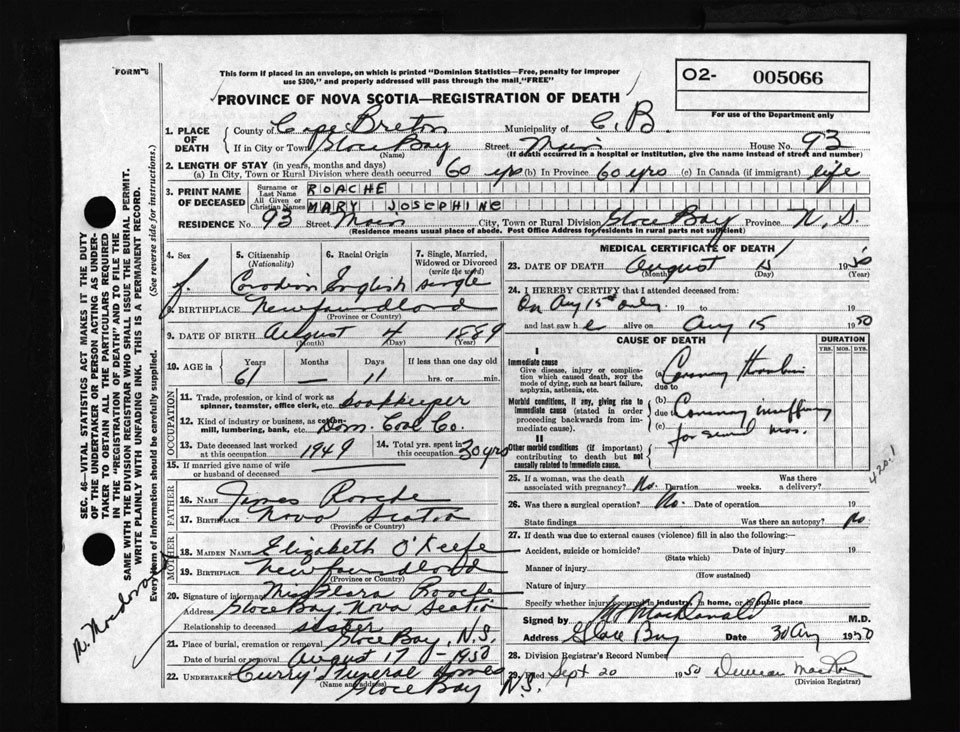 FORM
This form if placed in an envelope, on which is printed "Dominion Statistics—Free, penalty for improper
use $300," and properly addressed will pass through the mail "FREE"
O2- 005066
For use of the Department only
PROVINCE OF NOVA SCOTIA—REGISTRATION OF DEATH
1. PLACE OF DEATH
County of Cape Breton Municipality of C.B.
If in City or Town Glace Bay Street Main House No. 93
(Name) (If death occurred in a hospital or institution, give the name instead of street and number)
2. LENGTH OF STAY (in years, months and days)
(a) In City, Town or Rural Division where death occurred 60 yrs (b) In Province 60 yrs (c) In Canada (if immigrant) life
3. PRINT NAME OF DECEASED
Surname or Last Name ROACHE
All Given or Christian Names MARY JOSEPHINE
RESIDENCE No. 93 Street Main City, Town or Rural Division Glace Bay Province N.S.
(Residence means usual place of abode. Post Office Address for residents in rural parts not sufficient)
4. Sex f.
5. Citizenship (Nationality) Canadian
6. Racial Origin English
7. Single, Married, Widowed or Divorced (write the word) single
8. BIRTHPLACE Newfoundland
(Province or Country)
9. DATE OF BIRTH August 4 1889
(Month) (Day) (Year)
10. AGE in Years Months Days If less than one day old
61 — 11 hrs. or min.
OCCUPATION
11. Trade, profession, or kind of work as spinner, teamster, office clerk, etc. bookkeeper
12. Kind of industry or business, as cotton-mill, lumbering, bank, etc. Dom. Coal Co.
13. Date deceased last worked at this occupation 1949
14. Total yrs. spent in this occupation 30 yrs
15. If married give name of wife or husband of deceased
FATHER
16. NAME James Roache
17. BIRTHPLACE Nova Scotia
(Province or Country)
MOTHER
18. MAIDEN NAME Elizabeth O'Keefe
19. BIRTHPLACE Newfoundland
(Province or Country)
20. Signature of informant Miss Clara Roache
Address Glace Bay, Nova Scotia
Relationship to deceased sister
21. Place of burial, cremation or removal Glace Bay, N.S.
Date of burial or removal August 17 – 1950
22. UNDERTAKER Curry's Funeral Home
(Name and address) Glace Bay N.S.
MEDICAL CERTIFICATE OF DEATH
23. DATE OF DEATH August 15 1950
(Month) (Day) (Year)
24. I HEREBY CERTIFY that I attended deceased from:
On Aug 15th only. 19 to 19
and last saw h e alive on Aug 15 1950
CAUSE OF DEATH
DURATION
YRS. MOS. DYS.
I
Immediate cause
Give disease, injury or complication which caused death, not the mode of dying, such as heart failure, asphyxia, asthenia, etc.
(a) Coronary thrombosis
due to
Morbid conditions, if any, giving rise to immediate cause (stated in order proceeding backwards from immediate cause).
(b)
due to Coronary insufficiency
(c) for several mos.
II
Other morbid conditions (if important) contributing to death but not causally related to immediate cause.
420.1
25. If a woman, was the death associated with pregnancy? No. Duration weeks. Was there a delivery?
26. Was there a surgical operation? No. Date of operation 19
State findings Was there an autopsy? No
27. If death was due to external causes (violence) fill in also the following:
Accident, suicide or homicide? Date of injury 19
(State which)
Manner of injury
(How sustained)
Nature of injury
Specify whether injury occurred in industry, in home, or in public place
Signed by MacDonald M.D.
Address Glace Bay Date 30 Aug 1950
28. Division Registrar's Record Number
29. Filed Sept 20 1950 Duncan
(Division Registrar)
SEC. 46—VITAL STATISTICS ACT MAKES IT THE DUTY
OF THE UNDERTAKER OR PERSON ACTING AS UNDER-
TAKER TO OBTAIN ALL THE PARTICULARS REQUIRED
IN THE "REGISTRATION OF DEATH" AND TO FILE THE
SAME WITH THE DIVISION REGISTRAR WHO SHALL ISSUE THE BURIAL PERMIT.
WRITE PLAINLY WITH UNFADING INK. THIS IS A PERMANENT RECORD.
Every item of information should be carefully supplied. (See reverse side for instructions.)